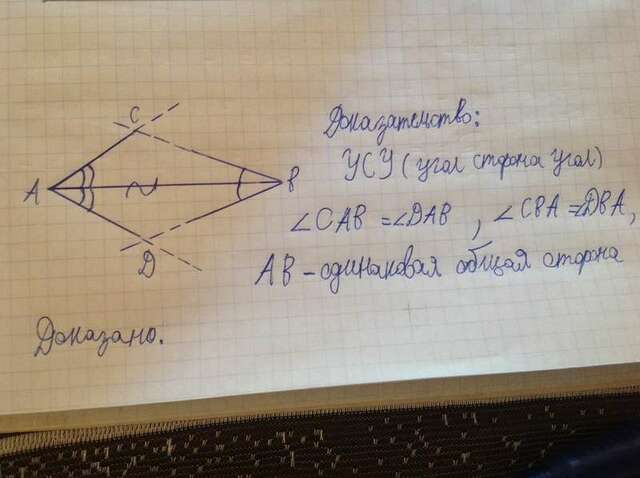 C
A
B
D
Доказательство:
УСУ (угол сторона угол)
∠CAB = ∠DAB , ∠CBA = ∠DBA,
AB - одинаковая общая сторона
Доказано.